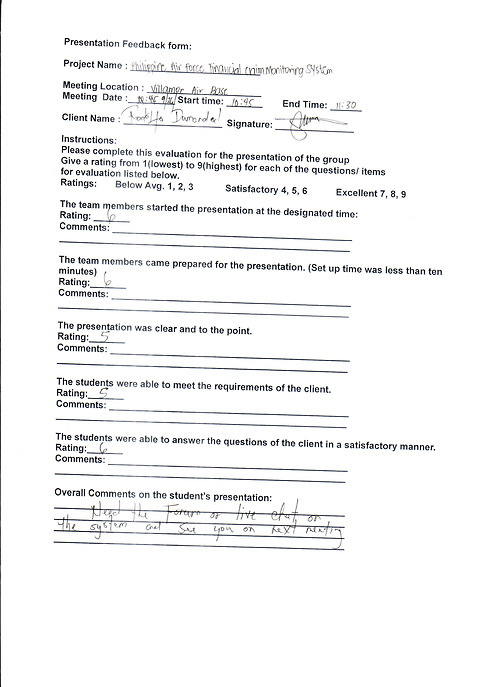 Presentation Feedback form:
Project Name : Philippine Air Force Financial Claim Monitoring System
Meeting Location : Villamor Air Base
Meeting Date : 10:45 Start time: 10:45 End Time: 11:30
Client Name : Signature:
Instructions:
Please complete this evaluation for the presentation of the group
Give a rating from 1(lowest) to 9(highest) for each of the questions/ items
for evaluation listed below.
Ratings: Below Avg. 1, 2, 3 Satisfactory 4, 5, 6 Excellent 7, 8, 9
The team members started the presentation at the designated time:
Rating: 6
Comments:
The team members came prepared for the presentation. (Set up time was less than ten
minutes)
Rating: 6
Comments:
The presentation was clear and to the point.
Rating: 5
Comments:
The students were able to meet the requirements of the client.
Rating: 5
Comments:
The students were able to answer the questions of the client in a satisfactory manner.
Rating: 6
Comments:
Overall Comments on the student's presentation:
Need the Forum or live chat on
the system and see you on next meeting